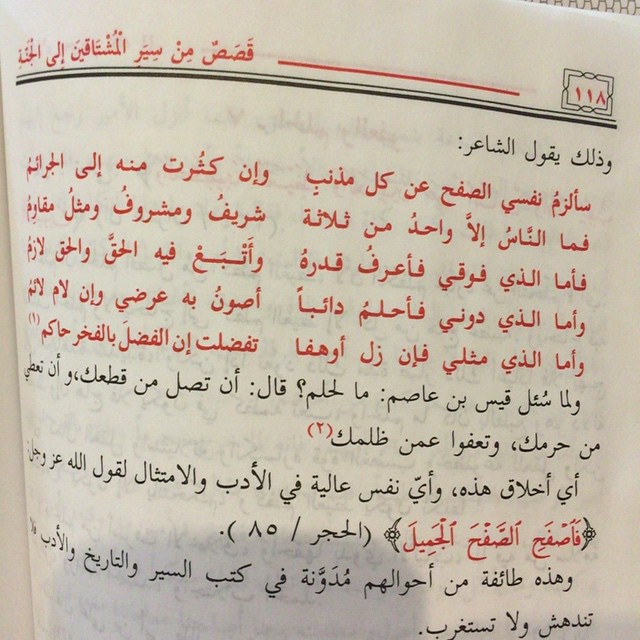 قَصَصٌ مِنْ سِيَرِ الْمُشْتَاقِينَ إِلَى الْجَنَّةِ
١١٨
وذلك يقول الشاعر:
سألزمُ نفسي الصفح عن كل مذنبِ وإن كثُرت منه إلى الجرائمُ
فما النَّاسُ إلاَّ واحدُ من ثلاثة شريفُ ومشروفُ ومثلُ مقاومُ
فأما الذي فوقي فأعرفُ قدرهُ وأَتْبَعْ فيه الحقَّ والحق لازمُ
وأما الذي دوني فأحلمُ دائباً أصونُ به عرضي وإن لام لائمُ
وأما الذي مثلي فإن زل أوهفا تفضلت إن الفضلَ بالفخر حاكم(١)
ولما سُئل قيس بن عاصم: ما لحلم؟ قال: أن تصل من قطعك، و أن تعطي
من حرمك، وتعفوا عمن ظلمك(٢)
أي أخلاق هذه، وأيّ نفس عالية في الأدب والامتثال لقول الله عز وجل:
﴿فَٱصْفَحِ ٱلصَّفْحَ ٱلْجَمِيلَ﴾ (الحجر / ٨٥ ).
وهذه طائفة من أحوالهم مُدَوَّنة في كتب السير والتاريخ والأدب فلا
تندهش ولا تستغرب.